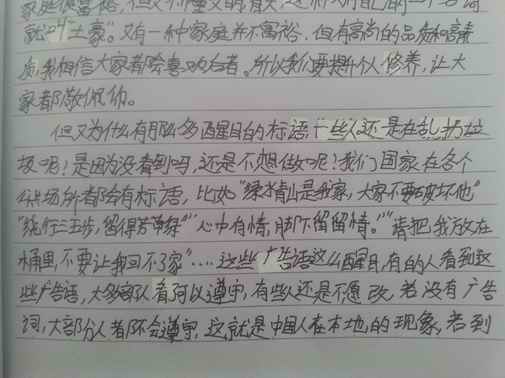 家庭很富裕，但又不懂文明有关，这种人
就叫"土豪"。又有一种家庭并不富裕，但有高尚的品质和素
质，我相信大家都会喜欢后者。所以我们要提升个人修养，让大
家都敬佩你。
但又为什么有那么多醒目的标语，一些人还是在乱扔垃
圾呢？是因为没看到吗，还是不想做呢？我们国家在各个
公共场所都会有标语，比如"绿水青山是我家，大家不要破坏他"
"绕行三五步，留得芳草绿""心中有情，脚下留留情。""请把我放在
桶里，不要让我回不了家"····这些广告语这么醒目，有的人看到这
些广告语，大多部队看可以遵守，有些人还是不愿改，若没有广告
词，大部分人都不会遵守，这就是中国人在本地的现象，若到